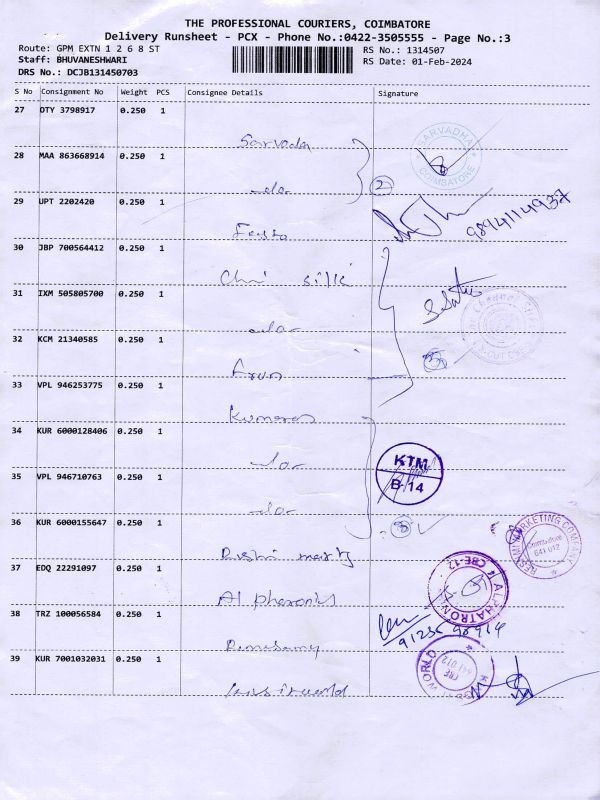 THE PROFESSIONAL COURIERS, COIMBATORE
Delivery Runsheet - PCX - Phone No.:0422-3505555 - Page No.:3
Route: GPM EXTN 1 2 6 8 ST
RS No.: 1314507
Staff: BHUVANESHWARI
RS Date: 01-Feb-2024
DRS No.: DCJB131450703
S No Consignment No Weight PCS Consignee Details Signature
27 DTY 3798917 0.250 1
Sarvada
SARVADHA COIMBATORE
28 MAA 863668914 0.250 1
-do-
2
29 UPT 2202420 0.250 1
9894114937
30 JBP 700564412 0.250 1
silk
31 IXM 505805700 0.250 1
-do-
32 KCM 21340585 0.250 1
Arun
33 VPL 946253775 0.250 1
Kumaran
34 KUR 6000128406 0.250 1
-do-
KTM
B-14
35 VPL 946710763 0.250 1
-do-
36 KUR 6000155647 0.250 1
MARKETING COMPANY
Coimbatore
641 012
37 EDQ 22291097 0.250 1
Al
ALPHATRON
CBE-12
38 TRZ 100056584 0.250 1
39 KUR 7001032031 0.250 1
WORLD
CBE
641 012